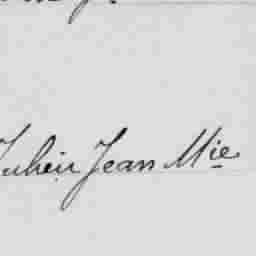 Julien Jean Mie